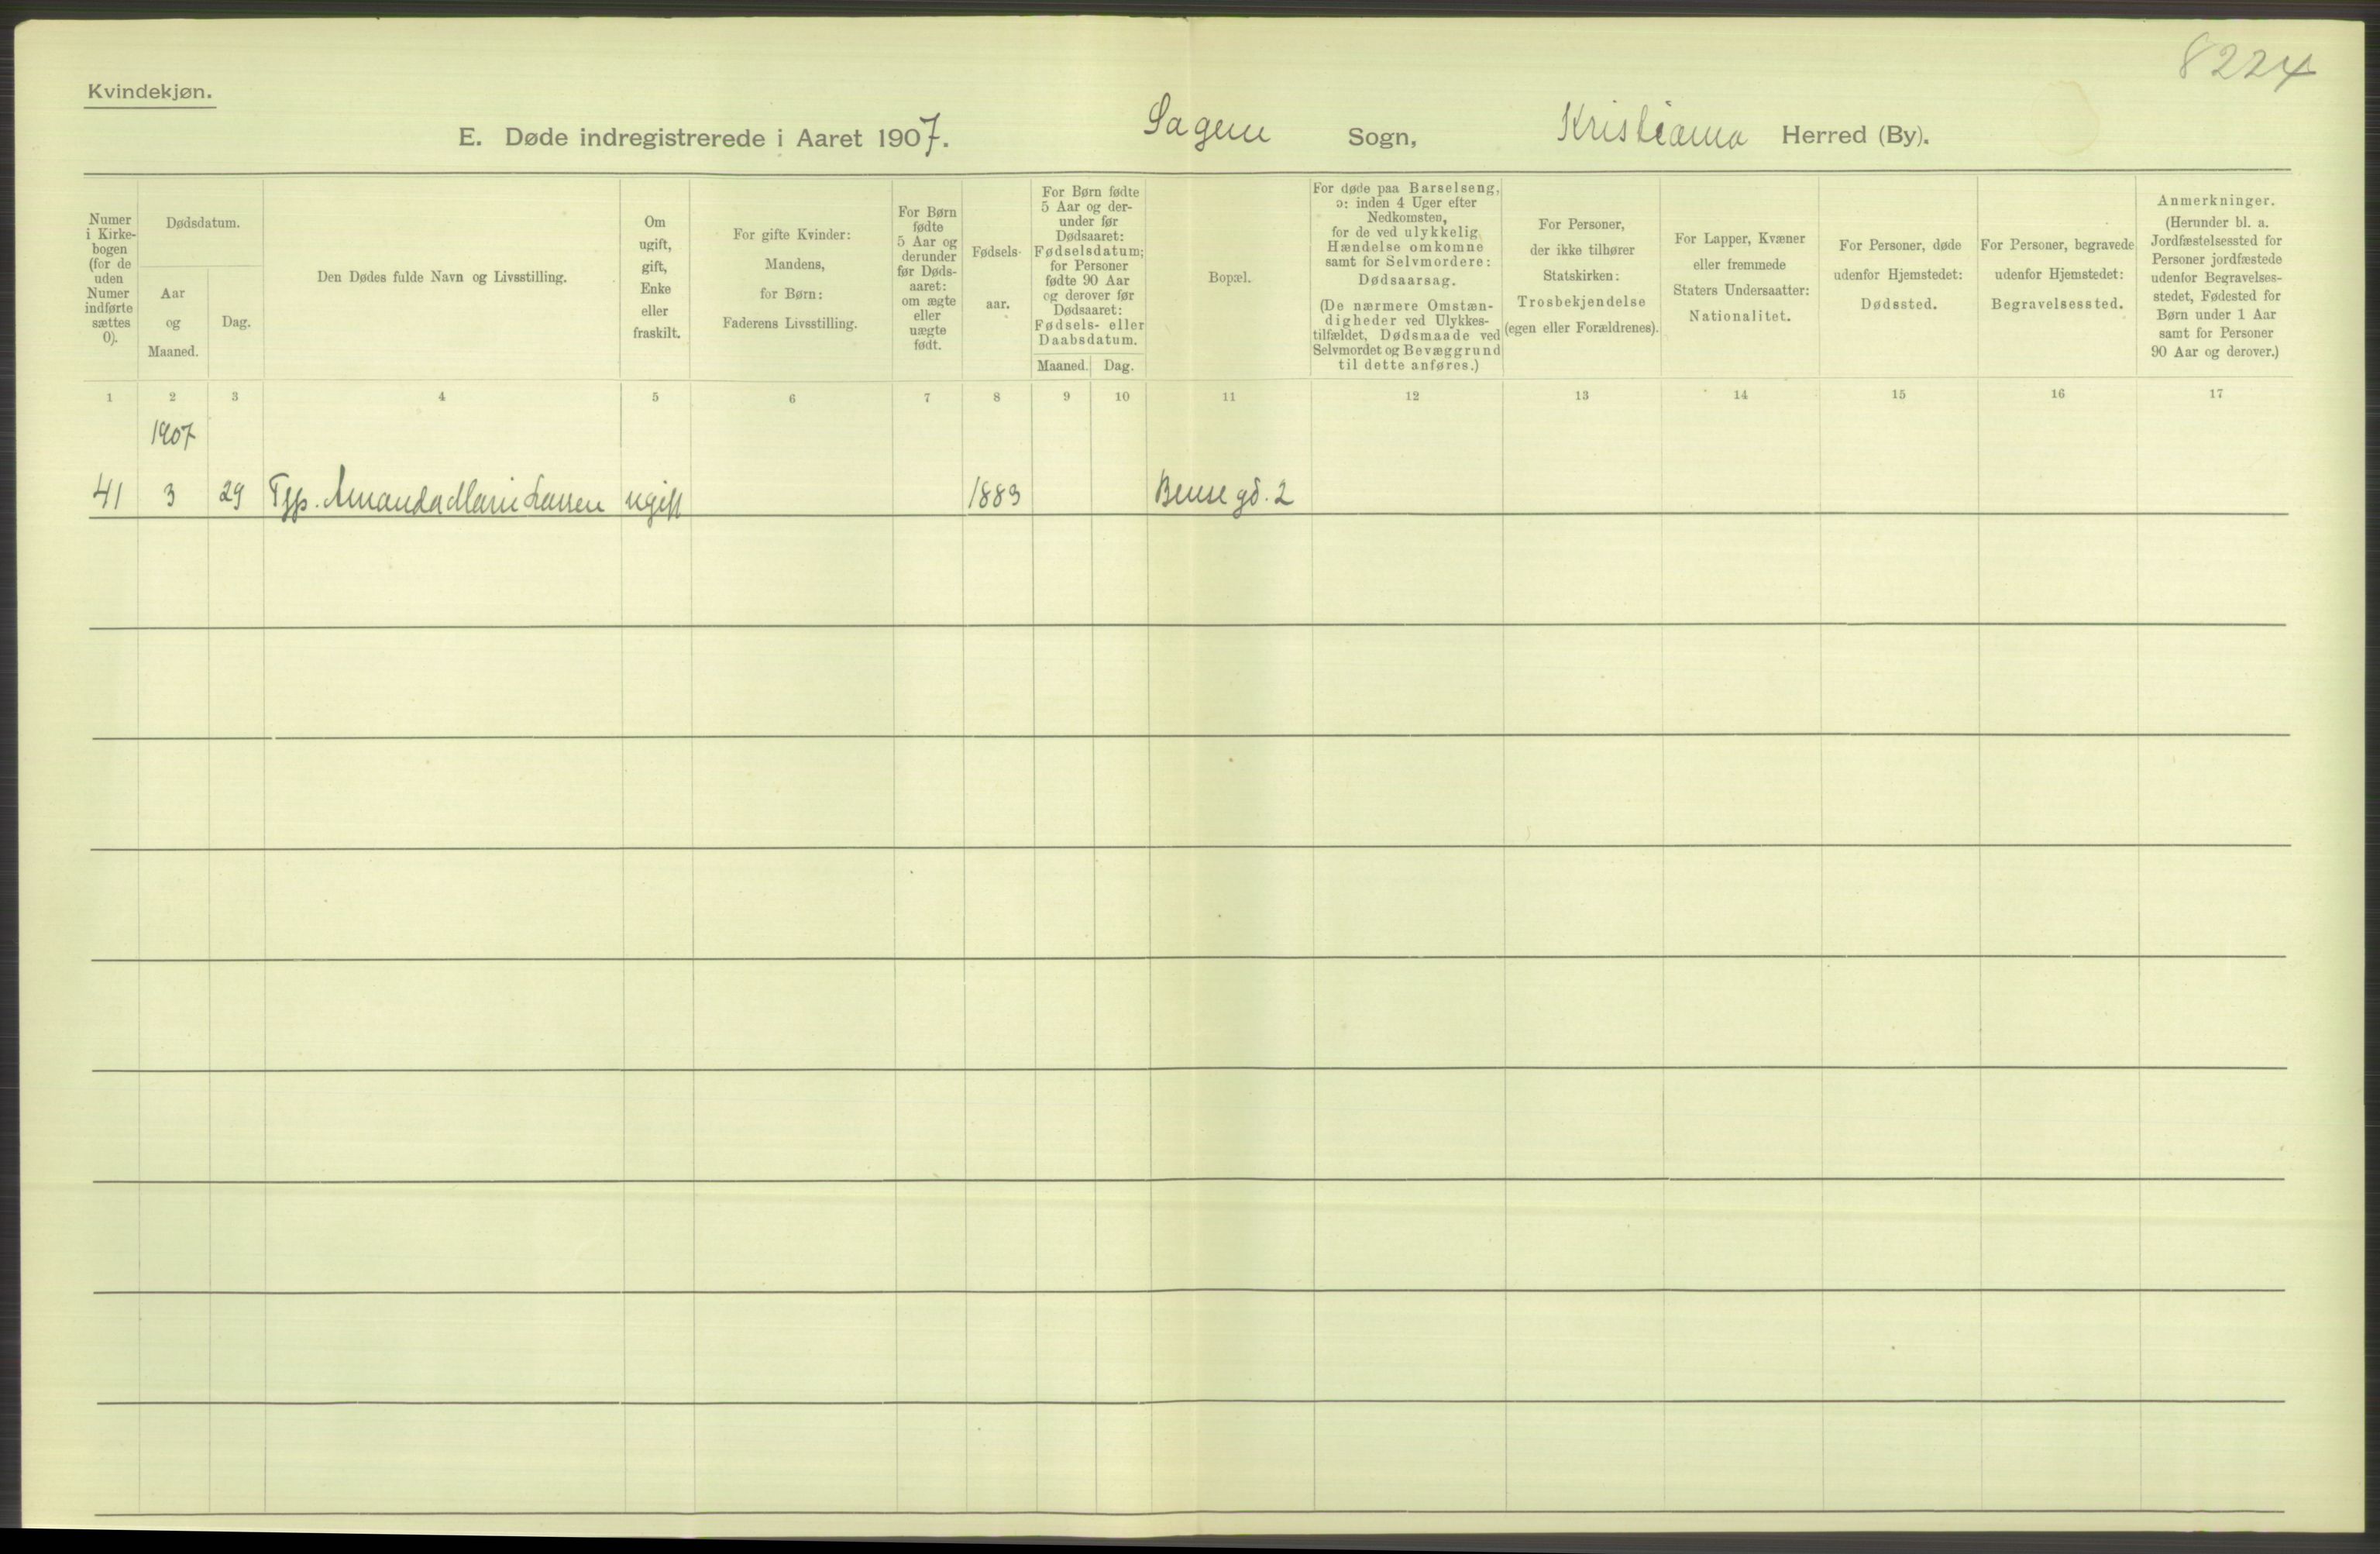 8224
Kvindekjøn.
E. Døde indregistrerede i Aaret 1907. Sagene Sogn, Kristiania Herred (By).
Numer
i Kirke-
bogen
(for de
uden
Numer
indførte
sættes
0).
Dødsdatum.
Aar
og
Maaned.
Dag.
Den Dødes fulde Navn og Livsstilling.
Om
ugift,
gift,
Enke
eller
fraskilt.
For gifte Kvinder:
Mandens,
for Børn:
Faderens Livsstilling.
For Børn
fødte
5 Aar og
derunder
før Døds-
aaret:
om ægte
eller
uægte
født.
Fødsels-
aar.
For Børn fødte
5 Aar og der-
under før
Dødsaaret:
Fødselsdatum;
for Personer
fødte 90 Aar
og derover før
Dødsaaret:
Fødsels- eller
Daabsdatum.
Maaned. Dag.
Bopæl.
For døde paa Barselseng,
ɔ: inden 4 Uger efter
Nedkomsten,
for de ved ulykkelig
Hændelse omkomne
samt for Selvmordere:
Dødsaarsag.
(De nærmere Omstæn-
digheder ved Ulykkes-
tilfældet, Dødsmaade ved
Selvmordet og Bevæggrund
til dette anføres.)
For Personer,
der ikke tilhører
Statskirken:
Trosbekjendelse
(egen eller Forældrenes).
For Lapper, Kvæner
eller fremmede
Staters Undersaatter:
Nationalitet.
For Personer, døde
udenfor Hjemstedet:
Dødssted.
For Personer, begravede
udenfor Hjemstedet:
Begravelsessted.
Anmerkninger.
(Herunder bl. a.
Jordfæstelsessted for
Personer jordfæstede
udenfor Begravelses-
stedet, Fødested for
Børn under 1 Aar
samt for Personer
90 Aar og derover.)
1 2 3 4 5 6 7 8 9 10 11 12 13 14 15 16 17
1907
41 3 29 Amanda Marie Larsen ugift 1883 2